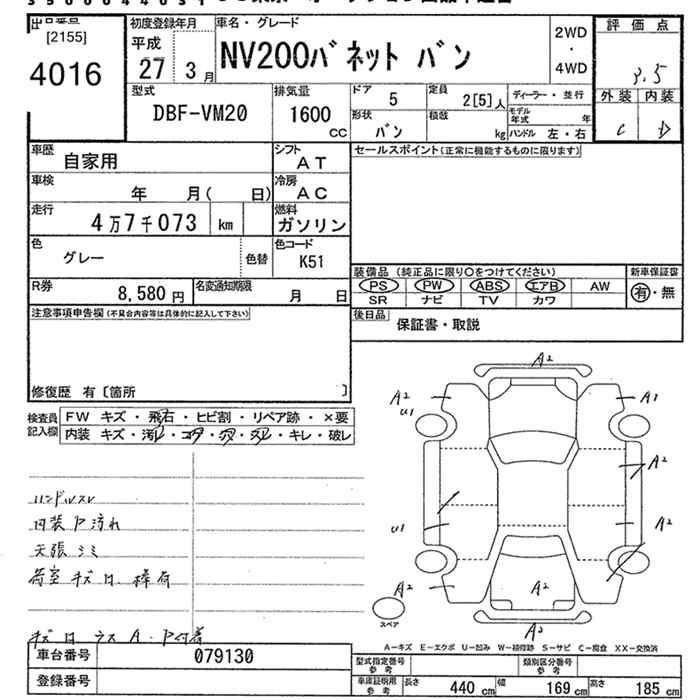 [2155]
4016
初度登録年月
平成
27 3月
車名・グレード
NV200バネット バン
2WD
・
4WD
評価点
3.5
外装 内装
C D
型式
DBF-VM20
排気量
1600
cc
ドア
5
定員
2[5]人
ディーラー・並行
形状
バン
積載
kg
モデル年式
年
ハンドル 左・右
車歴
自家用
シフト
AT
セールスポイント(正常に機能するものに限ります)
車検
年 月( 日)
冷房
AC
走行
4万7千073 km
燃料
ガソリン
色
グレー
色替
色コード
K51
装備品 (純正品に限り○をつけてください)
新車保証書
PS PW ABS エアB AW
SR ナビ TV カワ
有・無
R券
8,580円
名変通知期限
月 日
後日品
保証書・取説
注意事項申告欄(不具合内容等は具体的に記入して下さい)
修復歴 有〔箇所 〕
検査員
記入欄
FW キズ・飛石・ヒビ割・リペア跡・×要
内装 キズ・汚レ・コゲ・穴・スレ・キレ・破レ
ハンドルスレ
内装P汚れ
天張シミ
荷室キズ凹
キズ凹 ラス A・P付着
A2
A2
U1
A1
A2
U1
A2
A2
A2
A2
スペア
A-キズ E-エクボ U-凹み W-補修跡 S-サビ C-腐食 XX-交換済
車台番号
079130
登録番号
型式指定番号
参考
類別区分番号
参考
車庫証明用
参考
長さ 440cm
幅 169cm
高さ 185cm